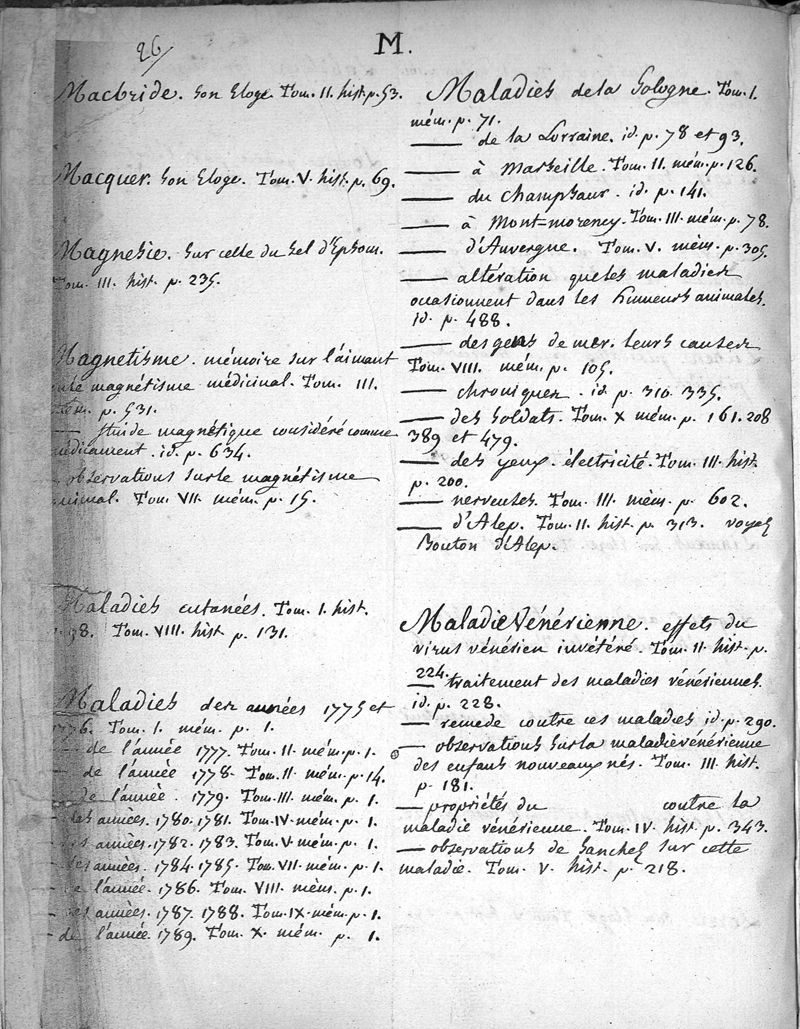 26
M.
Macbride. Son Eloge. Tom. II. hist. p. 53.
Macquer. Son Eloge. Tom. V. hist. p. 69.
Magnesie. Sur celle du Sel d'Epsom.
Tom. III. hist. p. 235.
Magnetisme. mémoire sur l'aimant
magnétisme médicinal. Tom. III.
mém. p. 531.
— fluide magnétique considéré comme
médicament. id. p. 634.
observations sur le magnétisme
animal. Tom. VII. mém. p. 15.
Maladies cutanées. Tom. I. hist.
Tom. VIII. hist. p. 131.
Maladies des années 1775 et
1776. Tom. I. mém. p. 1.
— de l'année 1777. Tom. II. mém. p. 1.
— de l'année 1778. Tom. II. mém. p. 14.
— de l'année. 1779. Tom. III. mém. p. 1.
— des années. 1780. 1781. Tom. IV. mém. p. 1.
— des années. 1782. 1783. Tom. V. mém. p. 1.
— des années. 1784. 1785. Tom. VII. mém. p. 1.
— de l'année. 1786. Tom. VIII. mém. p. 1.
— des années. 1787. 1788. Tom. IX. mém. p. 1.
— de l'année. 1789. Tom. X. mém. p. 1.
Maladies de la Sologne. Tom. I.
mém. p. 71.
— de la Lorraine. id. p. 78 et 93.
— à Marseille. Tom. II. mém. p. 126.
— du Champsaur. id. p. 141.
— à Mont=morency. Tom. III. mém. p. 78.
— d'Auvergne. Tom. V. mém. p. 305.
— altération que les maladies
occasionnent dans les humeurs animales.
id. p. 488.
— des gens de mer. leurs causes
Tom. VIII. mém. p. 105.
— chroniques. id. p. 310. 335.
— des Soldats. Tom. X mém. p. 161. 208
389 et 479.
— des yeux. électricité. Tom. III. hist.
p. 200.
— nerveuses. Tom. III. mém. p. 602.
— d'Alep. Tom. II. hist. p. 313. voyez
Bouton d'Alep.
Maladie Vénérienne. effets du
virus vénérien invétéré. Tom. II. hist. p.
224.
— traitement des maladies vénériennes.
id. p. 228.
— remede contre ces maladies id. p. 290.
— observations sur la maladie vénérienne
des enfans nouveaux nés. Tom. III. hist.
p. 181.
— propriétés du contre la
maladie vénérienne. Tom. IV. hist. p. 343.
— observations de Sanchez sur cette
maladie. Tom. V. hist. p. 218.